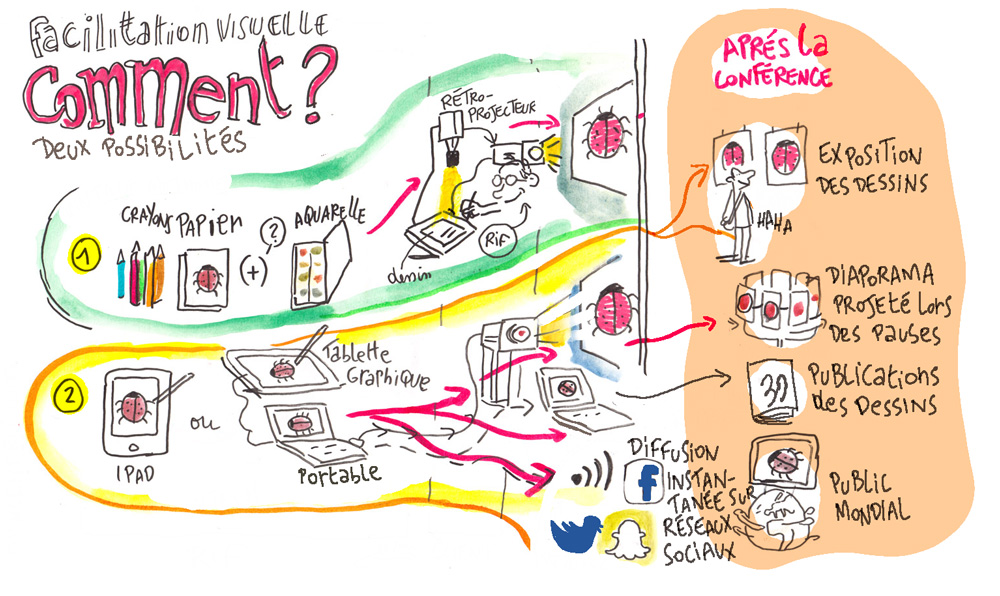 facilitation VISUELLE
Comment ?
DEUX POSSIBILITÉS
1
CRAYONS
PAPIER
(+)
?
AQUARELLE
RÉTRO-
PROJECTEUR
dessin
RIF
2
IPAD
ou
Tablette
Graphique
Portable
DIFFUSION
INSTAN-
TANÉE SUR
RÉSEAUX
SOCIAUX
f
APRÉS La
CONFÉRENCE
EXPOSITION
DES DESSINS
HAHA
DIAPORAMA
PROJETÉ LORS
DES PAUSES
PUBLICATIONS
des DESSINS
PUBLIC
MONDIAL